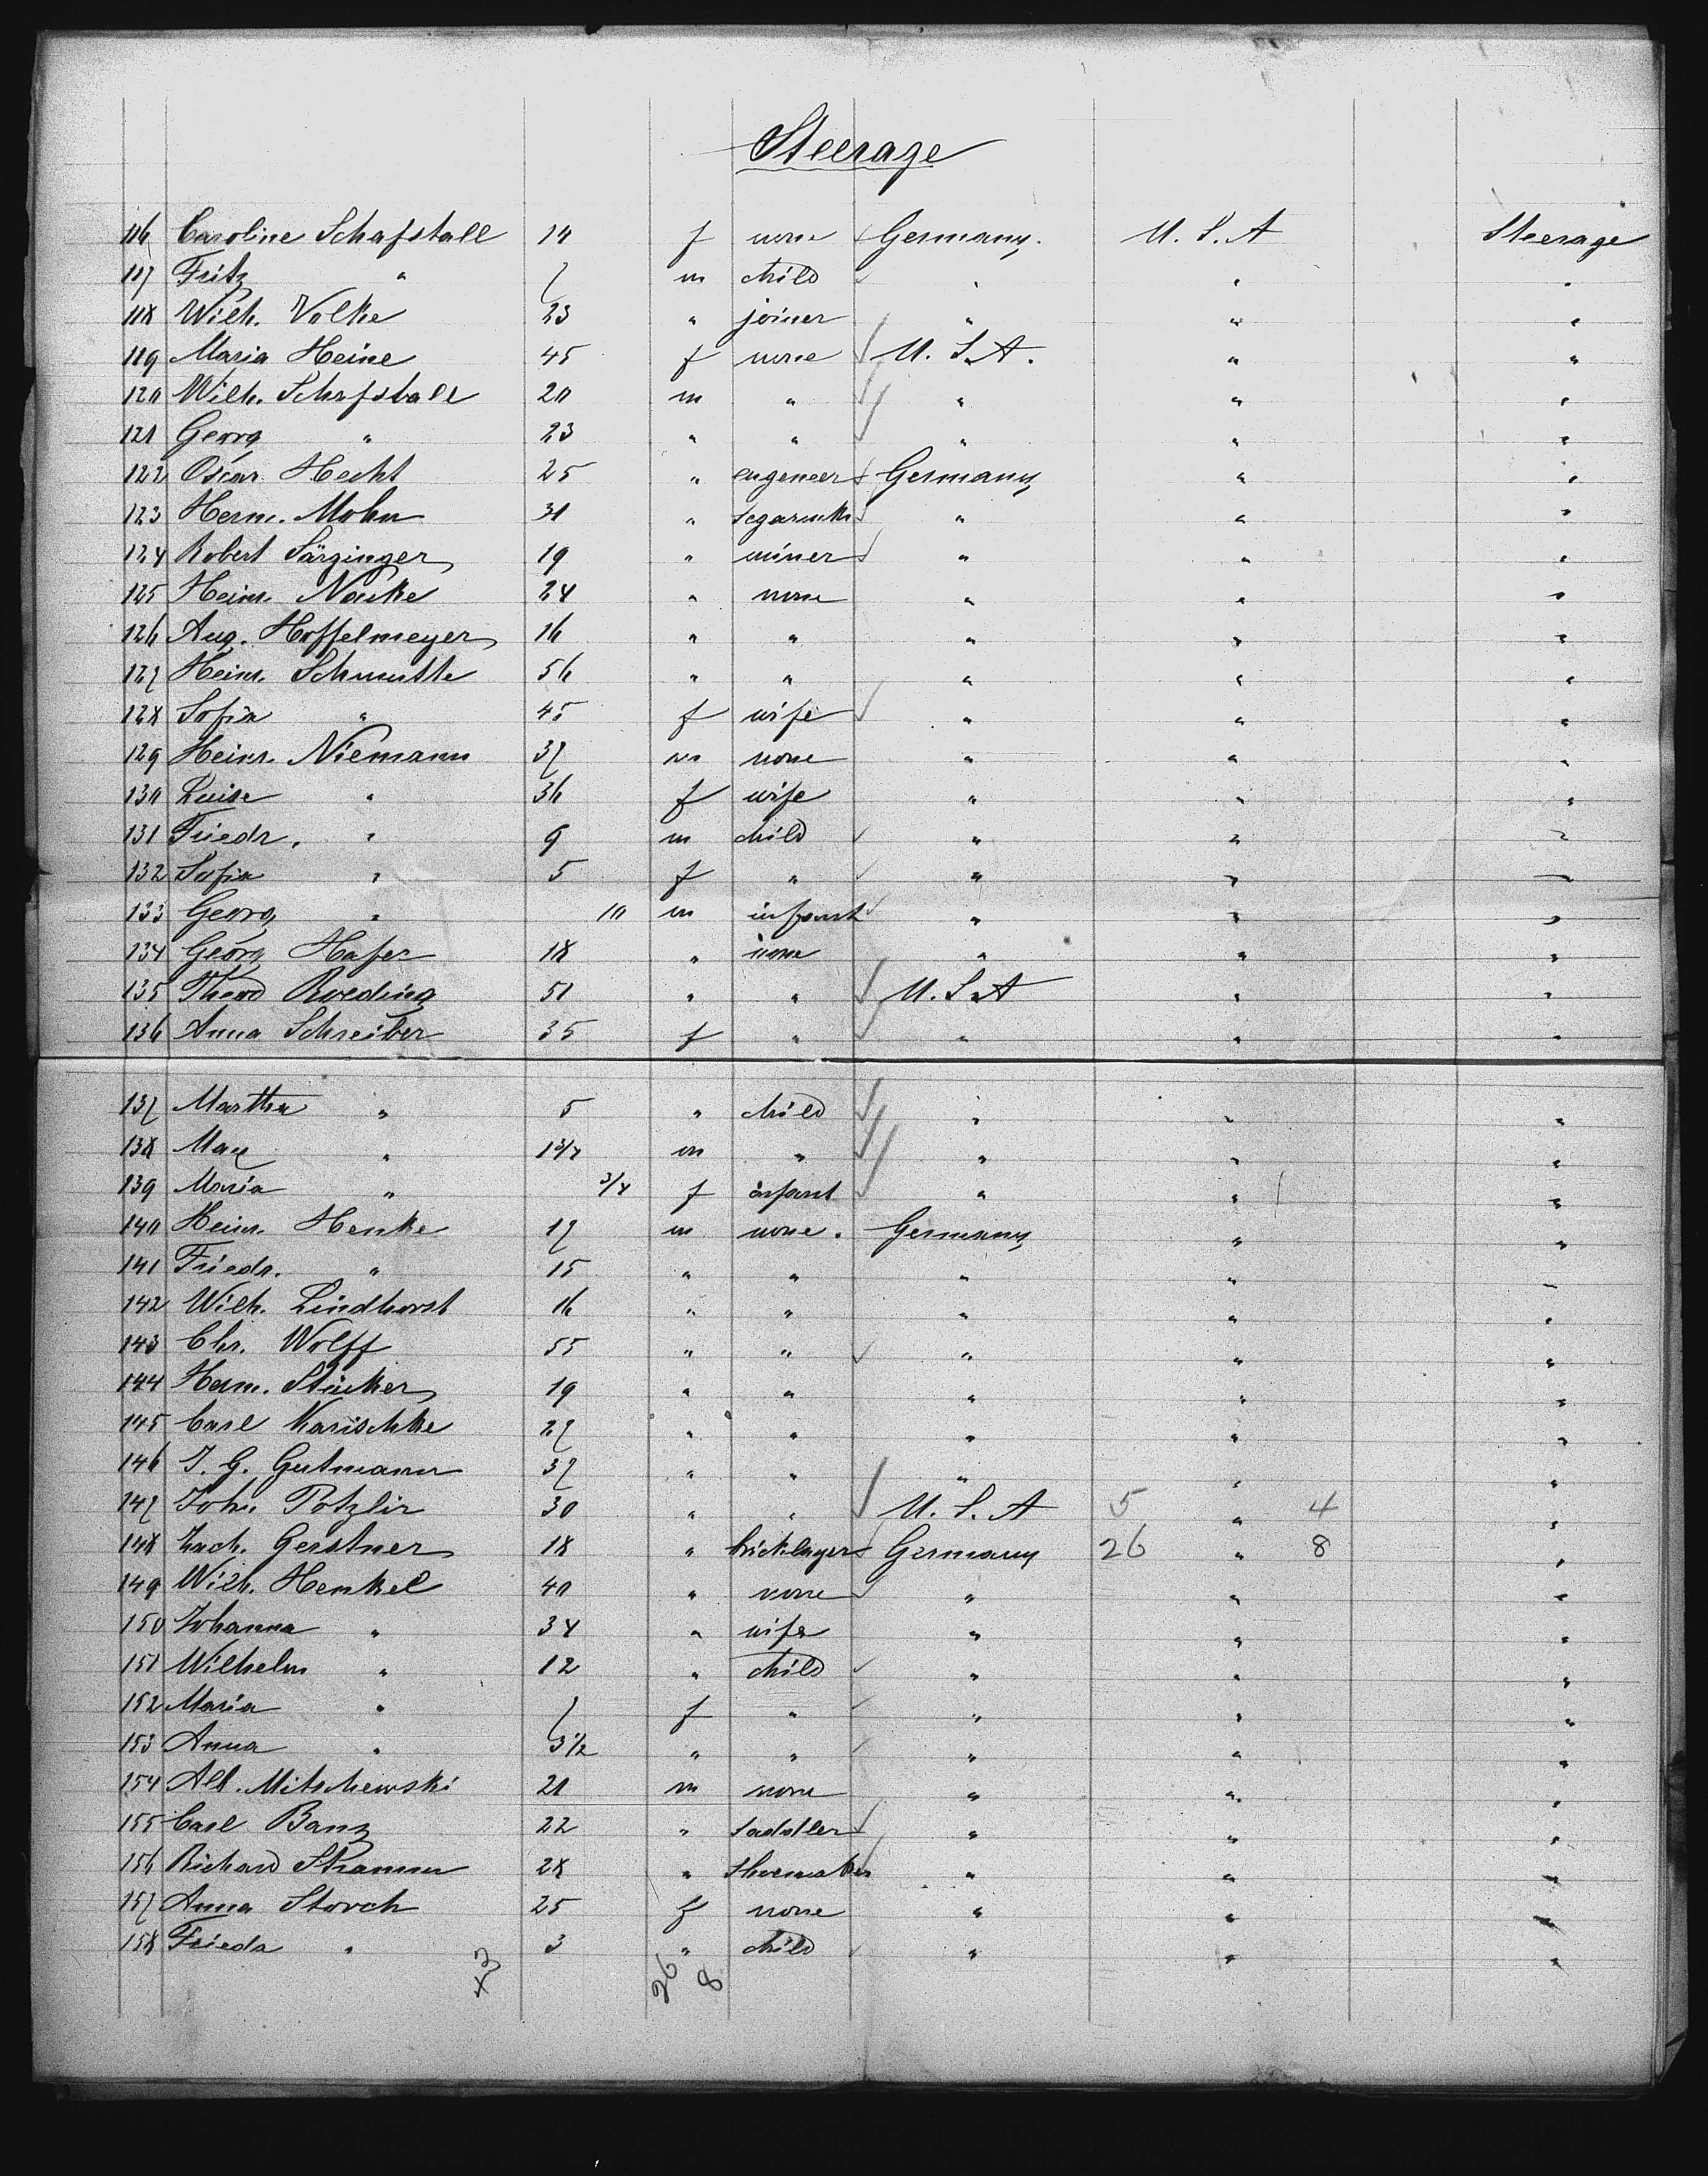 Steerage
116 Caroline Schafstall 14 f none Germany. U. S. A Steerage
117 Fritz " 7 m child " " "
118 Wilh. Volke 23 " joiner " " "
119 Maria Heine 45 f none U. S. A. " "
120 Wilh. Schafstall 20 m " " " "
121 Georg " 23 " " " " "
122 Oscar Hecht 25 " engeneer Germany " "
123 Herm. Mohn 31 " " " "
124 Robert Särzinger 19 " miner " " "
125 Heinr. Nacke 24 " none " " "
126 Aug. Hoffelmeyer 16 " " " " "
127 Heinr. 56 " " " " "
128 Sofia " 45 f wife " " "
129 Heinr. Niemann 37 m none " " "
130 Luise " 36 f wife " " "
131 Friedr. " 9 m child " " "
132 Sofia " 5 f " " " "
133 Georg " 10 m infant " " "
134 Georg Hafer 18 " none " " "
135 Theod Roeding 51 " " U. S. A " "
136 Anna Schreiber 35 f " " " "
137 Martha " 5 " child " " "
138 Max " 1 3/4 m " " " "
139 Maria " 3/4 f infant " " "
140 Heinr. Henke 17 m none. Germany " "
141 Friedr. " 15 " " " " "
142 Wilh. Lindhorst 16 " " " " "
143 Chr. Wolff 55 " " " " "
144 Herm. Stücker 19 " " " " "
145 Carl Karischke 27 " " " " "
146 J. G. Gutmann 37 " " " " "
147 John Potzlir 30 " " U. S. A 5 " 4 "
148 Zach. Gerstner 18 " bricklayer Germany 26 " 8 "
149 Wilh. Henkel 40 " none " " "
150 Johanna " 34 " wife " " "
151 Wilhelm " 12 " child " " "
152 Maria " 7 f " " " "
153 Anna " 3 1/2 " " " " "
154 Alb. Mitschewski 21 m none " " "
155 Carl Banz 22 " saddler " " "
156 Richard Stramm 28 " shoemaker " " "
157 Anna Storch 25 f none " " "
158 Frieda " 3 " child " " "
43 26 8